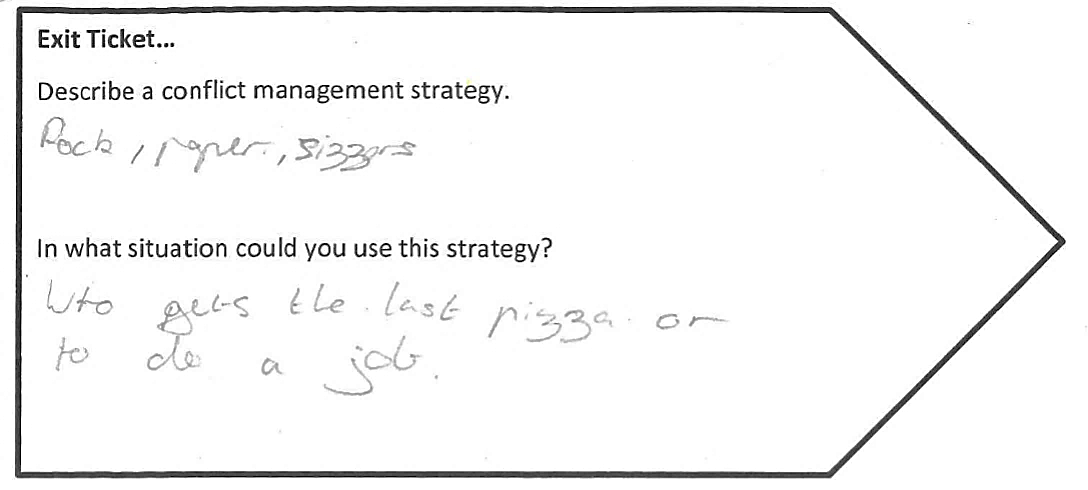 Exit Ticket...
Describe a conflict management strategy.
Rock, paper, sizzors
In what situation could you use this strategy?
Who gets the last pizza or
to do a job.